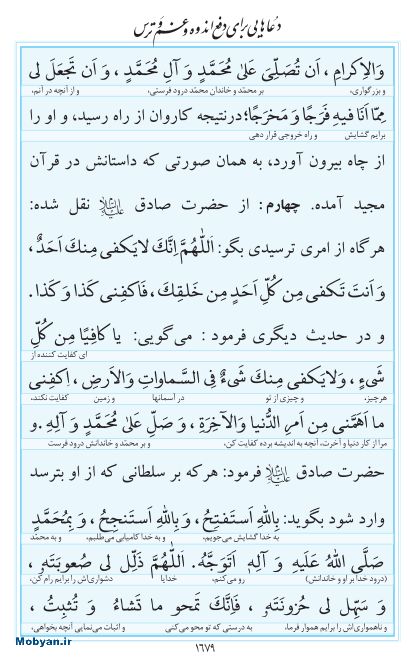 دعاهایی برای دفع اندوه و غم و ترس
وَالاِكرامِ ، اَن تُصَلِّىَ عَلىٰ مُحَمَّدٍ وَ آلِ مُحَمَّدٍ ، وَ اَن تَجعَلَ لى
و بزرگواری، بر محمّد و خاندان محمّد درود فرستی، و از آنچه در آنم،
مِمّا اَنَا فيهِ فَرَجًا وَ مَخرَجًا؛ درنتیجه کاروان از راه رسید، و او را
برایم گشایش و راه خروجی قرار دهی
از چاه بیرون آورد، به همان صورتی که داستانش در قرآن
مجید آمده. چهارم: از حضرت صادق علیه‌السلام نقل شده:
هرگاه از امری ترسیدی بگو: اَللّٰهُمَّ اِنَّكَ لايَكفى مِنكَ اَحَدٌ،
وَ اَنتَ تَكفى مِن كُلِّ اَحَدٍ مِن خَلقِكَ ، فَاكفِنى كَذا وَ كَذا.
و در حدیث دیگری فرمود : می‌گویی: يا كافِيًا مِن كُلِّ
ای کفایت کننده از
شَىءٍ ، وَلايَكفى مِنكَ شَىءٌ فِى السَّماواتِ وَالاَرضِ ، اِكفِنى
هرچیز، و چیزی از تو در آسمانها و زمین کفایت نکند،
ما اَهَمَّنى مِن اَمرِ الدُّنيا وَالآخِرَةِ ، وَ صَلِّ عَلىٰ مُحَمَّدٍ وَ آلِهِ .و
مرا از کار دنیا و آخرت، آنچه به اندیشه برده کفایت کن، و بر محمّد و خاندانش درود فرست
حضرت صادق علیه‌السلام فرمود: هرکه بر سلطانی که از او بترسد
وارد شود بگوید: بِاللّٰهِ اَستَفتِحُ ، وَ بِاللّٰهِ اَستَنجِحُ ، وَ بِمُحَمَّدٍ
به خدا گشایش می‌جویم، و به خدا کامیابی می‌طلبم، و به محمّد
صَلَّى اللّٰهُ عَلَيهِ وَ آلِهِ اَتَوَجَّهُ. اَللّٰهُمَّ ذَلِّل لى صُعوبَتَهُ ،
(درود خدا بر او و خاندانش) رو می‌کنم، خدایا دشواری‌اش را برایم رام کن،
وَ سَهِّل لى حُزونَتَهُ ، فَاِنَّكَ تَمحو ما تَشاءُ وَ تُثبِتُ ،
و ناهمواری‌اش را برایم هموار فرما، به درستی که تو محو می‌کنی و اثبات می‌نمایی آنچه بخواهی،
۱۶۷۹
Mobyan.ir